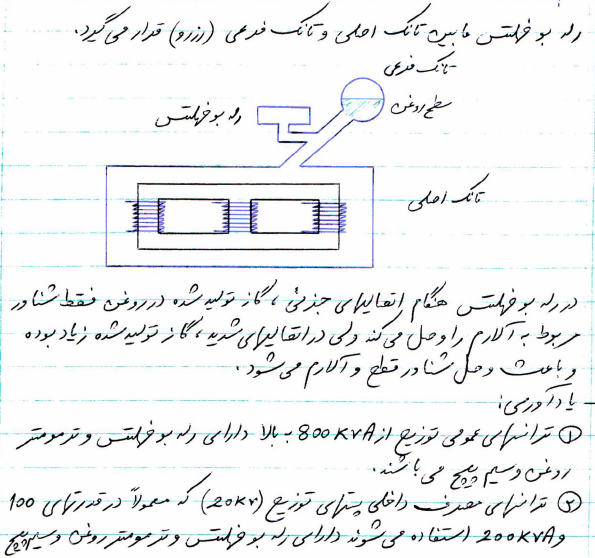 رله بوخهلتس مابین تانک اصلی و تانک فدعی (رزرو) قدار می گیرد.
تانک فدعی
سطح روغن
رله بوخهلتس
تانک اصلی
در رله بوخهلتس هنگام اتصالیهای جزئی ، گاز تولید شده در روغن فقط شناور
مربوط به آلارم را وصل می کند ولی در اتصالیهای شدید ، گاز تولید شده زیاد بوده
و باعث وصل شناور قطع و آلارم می شود .
یادآوری :
① ترانسهای عمومی توزیع از 800KVA به بالا دارای رله بوخهلتس و ترمومتر
روغن و سیم پیچ می باشند.
② ترانسهای مصرف داخلی پستهای توزیع (20KV) که معمولاً در قدرتهای 100
و 200KVA استفاده می شوند دارای رله بوخهلتس و ترمومتر روغن و سیم پیچ